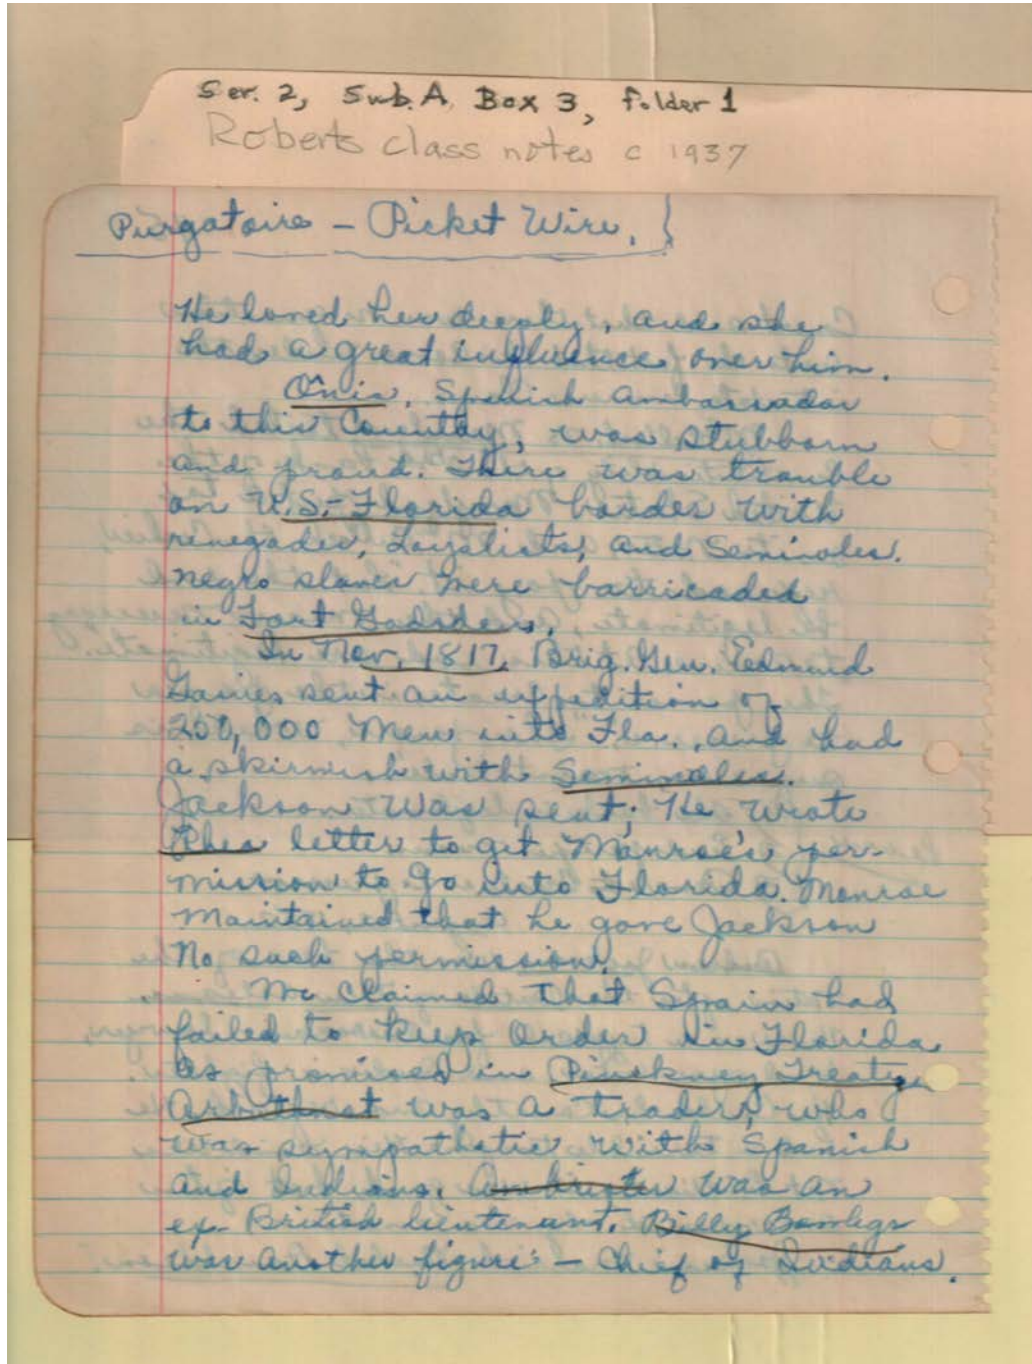 Ser. 2, Sub. A, Box 3, folder 1
Roberts class notes c 1937
Purgatoire – Picket Wire.
He loved her deeply, and she
had a great influence over him.
Onis, Spanish Ambassador
to this Country, was stubborn
and proud. There was trouble
on U.S.-Florida border with
renegades, Loyalists, and Seminoles.
negro slaves were barricaded
in Fort Gadsden.
In Nov. 1817, Brig. Gen. Edmund
Gaines sent an expedition of
250,000 men into Fla., and had
a skirmish with Seminoles.
Jackson was sent; He wrote
Rhea letter to get Monroe's per-
mission to go into Florida. Monroe
maintained that he gave Jackson
No such permission.
We claimed that Spain had
failed to keep order in Florida
as promised in Pinckney Treaty.
Arbuthnot was a trader, who
was sympathetic with Spanish
and Indians. Ambrister was an
ex-British lieutenant. Billy Bowlegs
was another figure – Chief of Indians.